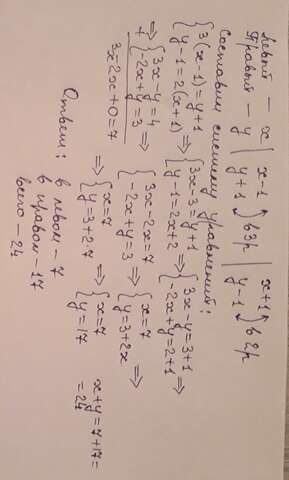 Левый — x | x-1 ↷ в 3р | x+1 ↷ в 2р
Правый — y | y+1 | y-1
Составим систему уравнений:
{3(x-1)=y+1 {3x-3=y+1 {3x-y=3+1
{y-1=2(x+1) ⇒ {y-1=2x+2 ⇒ {-2x+y=2+1 ⇒
+ {3x-y=4 {3x-2x=7 {x=7
{-2x+y=3 ⇒ {-2x+y=3 ⇒ {y=3+2x ⇒
3x-2x+0=7 ⇒ {x=7 ⇒ {x=7 x+y=7+17=
{y=3+2·7 {y=17 =24
Ответ: в левом — 7
в правом — 17
всего — 24